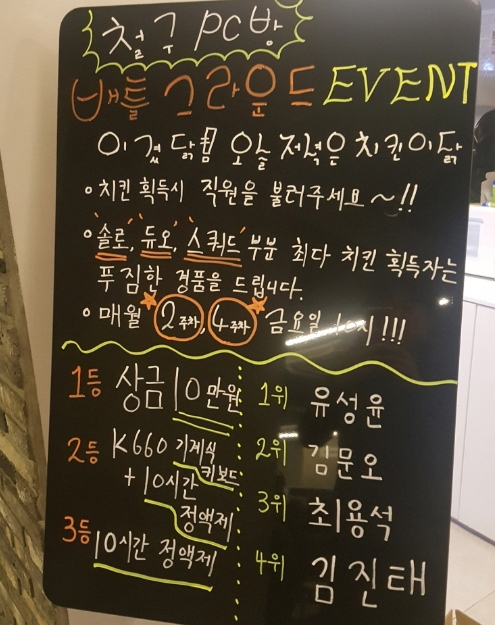 철구 PC방
배틀그라운드 EVENT
이겼닭! 오늘 저녁은 치킨이닭
• 치킨 획득시 직원을 불러주세요~!!
• 솔로, 듀오, 스쿼드 부분 최다 치킨 획득자는
푸짐한 경품을 드립니다.
• 매월 2주차, 4주차 금요일 !!!
1등 상금 10만원
2등 K660 기계식
키보드
+ 10시간
정액제
3등 10시간 정액제
1위 유성윤
2위 김문오
3위 최용석
4위 김진태